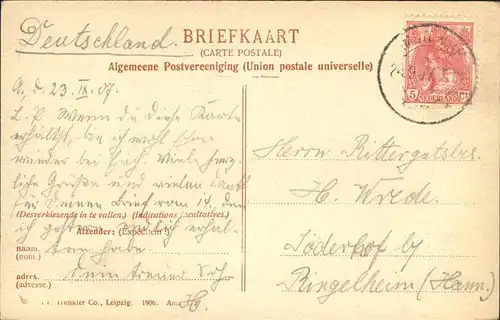 Deutschland.
BRIEFKAART
(CARTE POSTALE)
Algemeene Postvereeniging (Union postale universelle)
NEDERLAND
5 Ct
A. d. 23. IX. 07.
L. P. Wenn du diese Karte
erhältst, bin ich wohl schon
wieder bei Euch. Viele herz-
liche Grüße und vielen Dank
für Deinen Brief vom 14., den
(Desverkiezende in te vullen.) (Indications facultatives.)
ich gestern erhal-
Afzender: (Expéditeur:)
ten habe.
NAAM:
(nom.)
Dein treuer Sohn
ADRES:
(adresse.)
H.
Henkler Co., Leipzig. 1906.
Herrn Rittergutsbes.
H. Wrede.
Söderhof by
Ringelheim (Hann.)